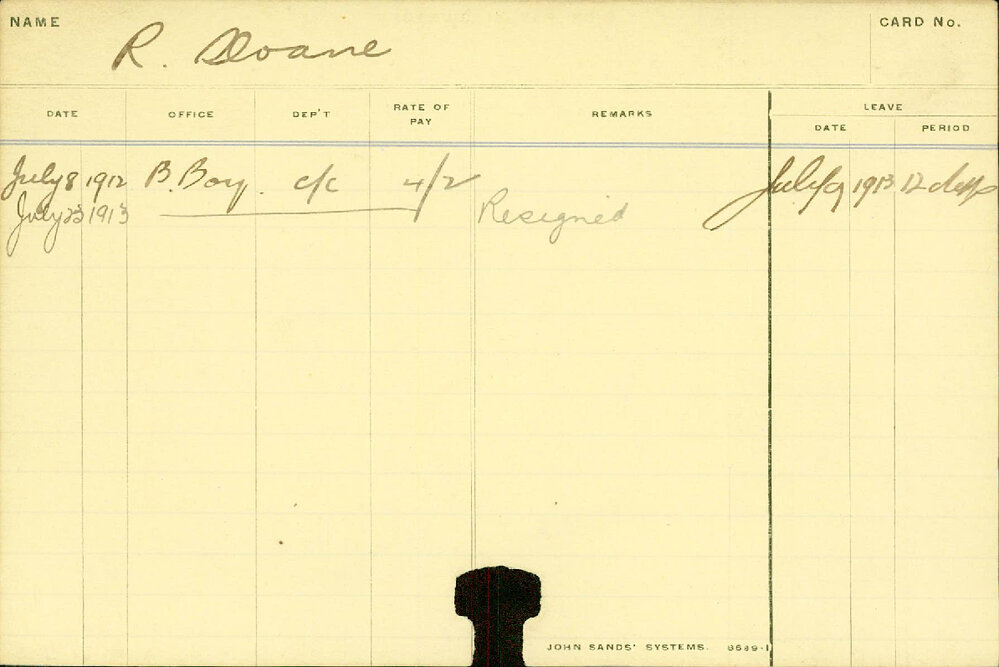 NAME R. Sloane CARD No.
DATE OFFICE DEP'T RATE OF PAY REMARKS LEAVE
DATE PERIOD
July 8 1912 B. Boy. c/c 4/2 July 9 1913 12 days
July 23 1913 Resigned
JOHN SANDS' SYSTEMS. 8689-1